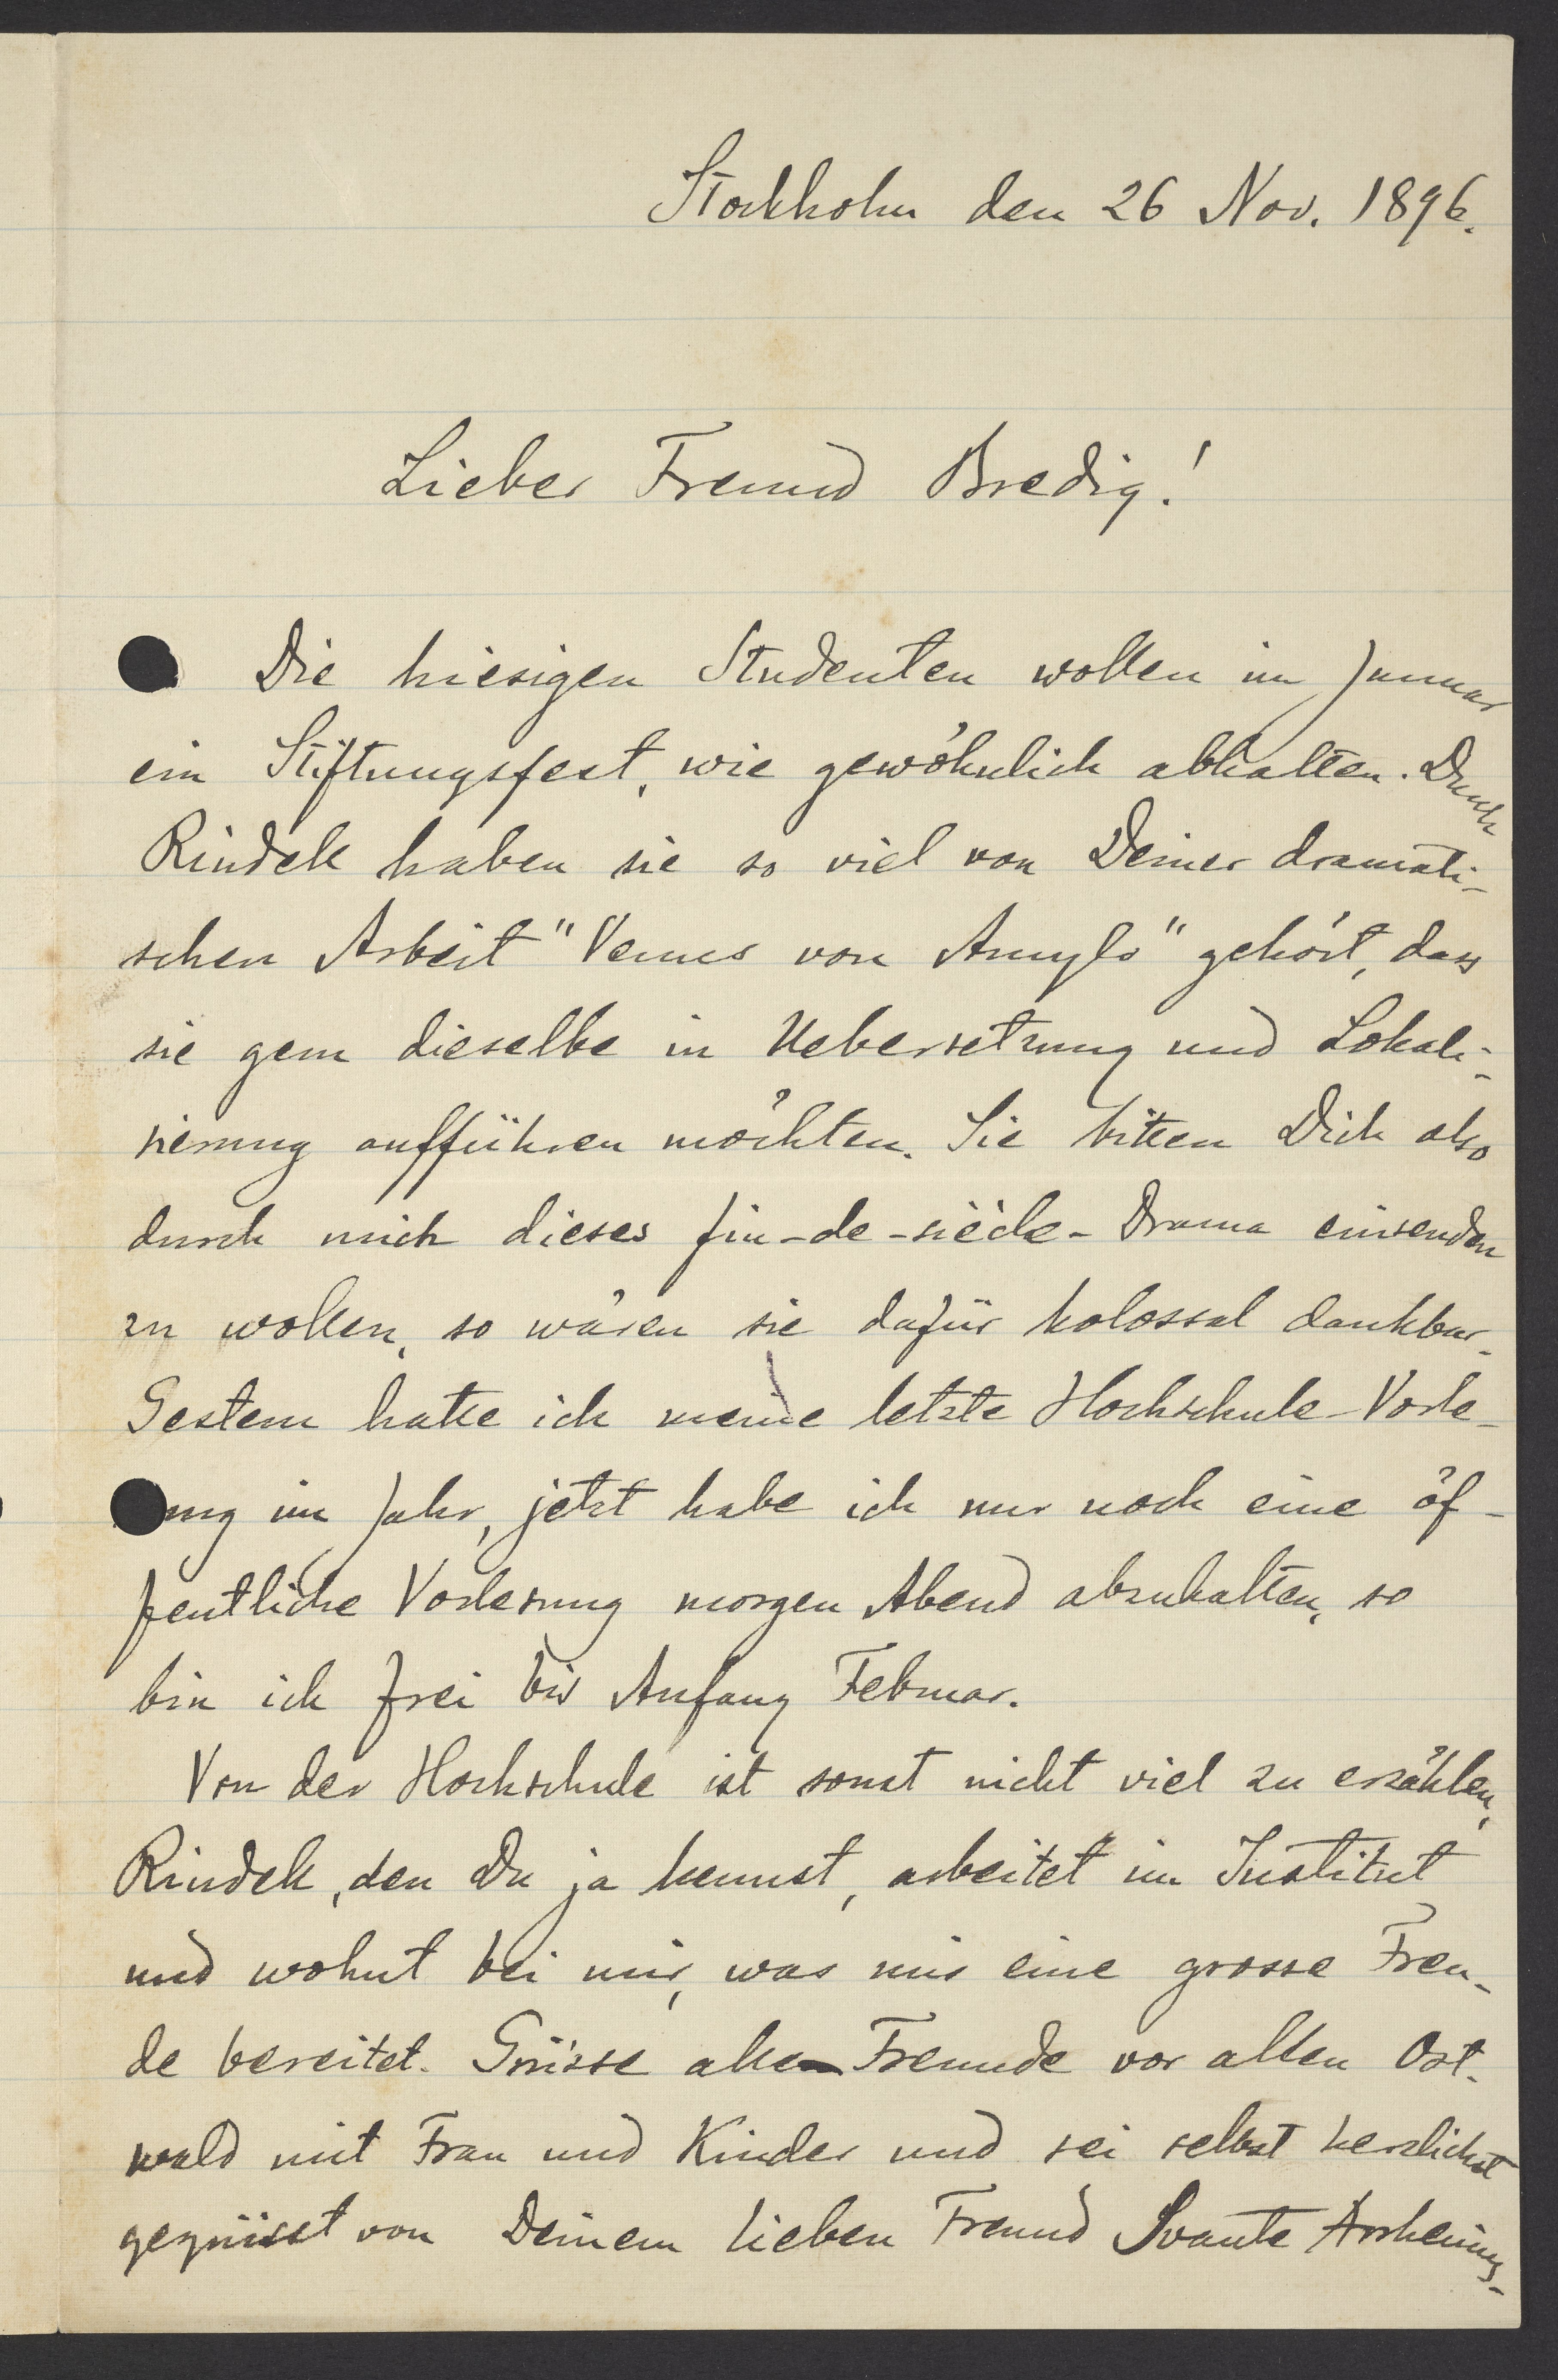 Stockholm den 26 Nov. 1896.
Lieber Freund Bredig!
Die hiesigen Studenten wollen im Januar
ein Stiftungsfest, wie gewöhnlich abhalten. Durch
Rindell haben sie so viel von Deiner dramati-
schen Arbeit "Venus von Amylo" gehört, dass
sie gern dieselbe in Uebersetzung und Lokali-
sierung aufführen möchten. Sie bitten Dich also
durch mich dieses fin-de-siècle-Drama einsenden
zu wollen, so wären sie dafür kolossal dankbar.
Gestern hatte ich meine letzte Hochschule-Vorle-
ung im Jahr, jetzt habe ich nur noch eine öf-
fentliche Vorlesung morgen Abend abzuhalten, so
bin ich frei bis Anfang Februar.
Von der Hochschule ist sonst nicht viel zu erzählen,
Rindell, den Du ja kennst, arbeitet im Institut
und wohnt bei mir, was mir eine grosse Freu-
de bereitet. Grüsse alle Freunde vor allen Ost-
wald mit Frau und Kinder und sei selbst herzlichst
gegrüsst von Deinem lieben Freund Svante Arrhenius.